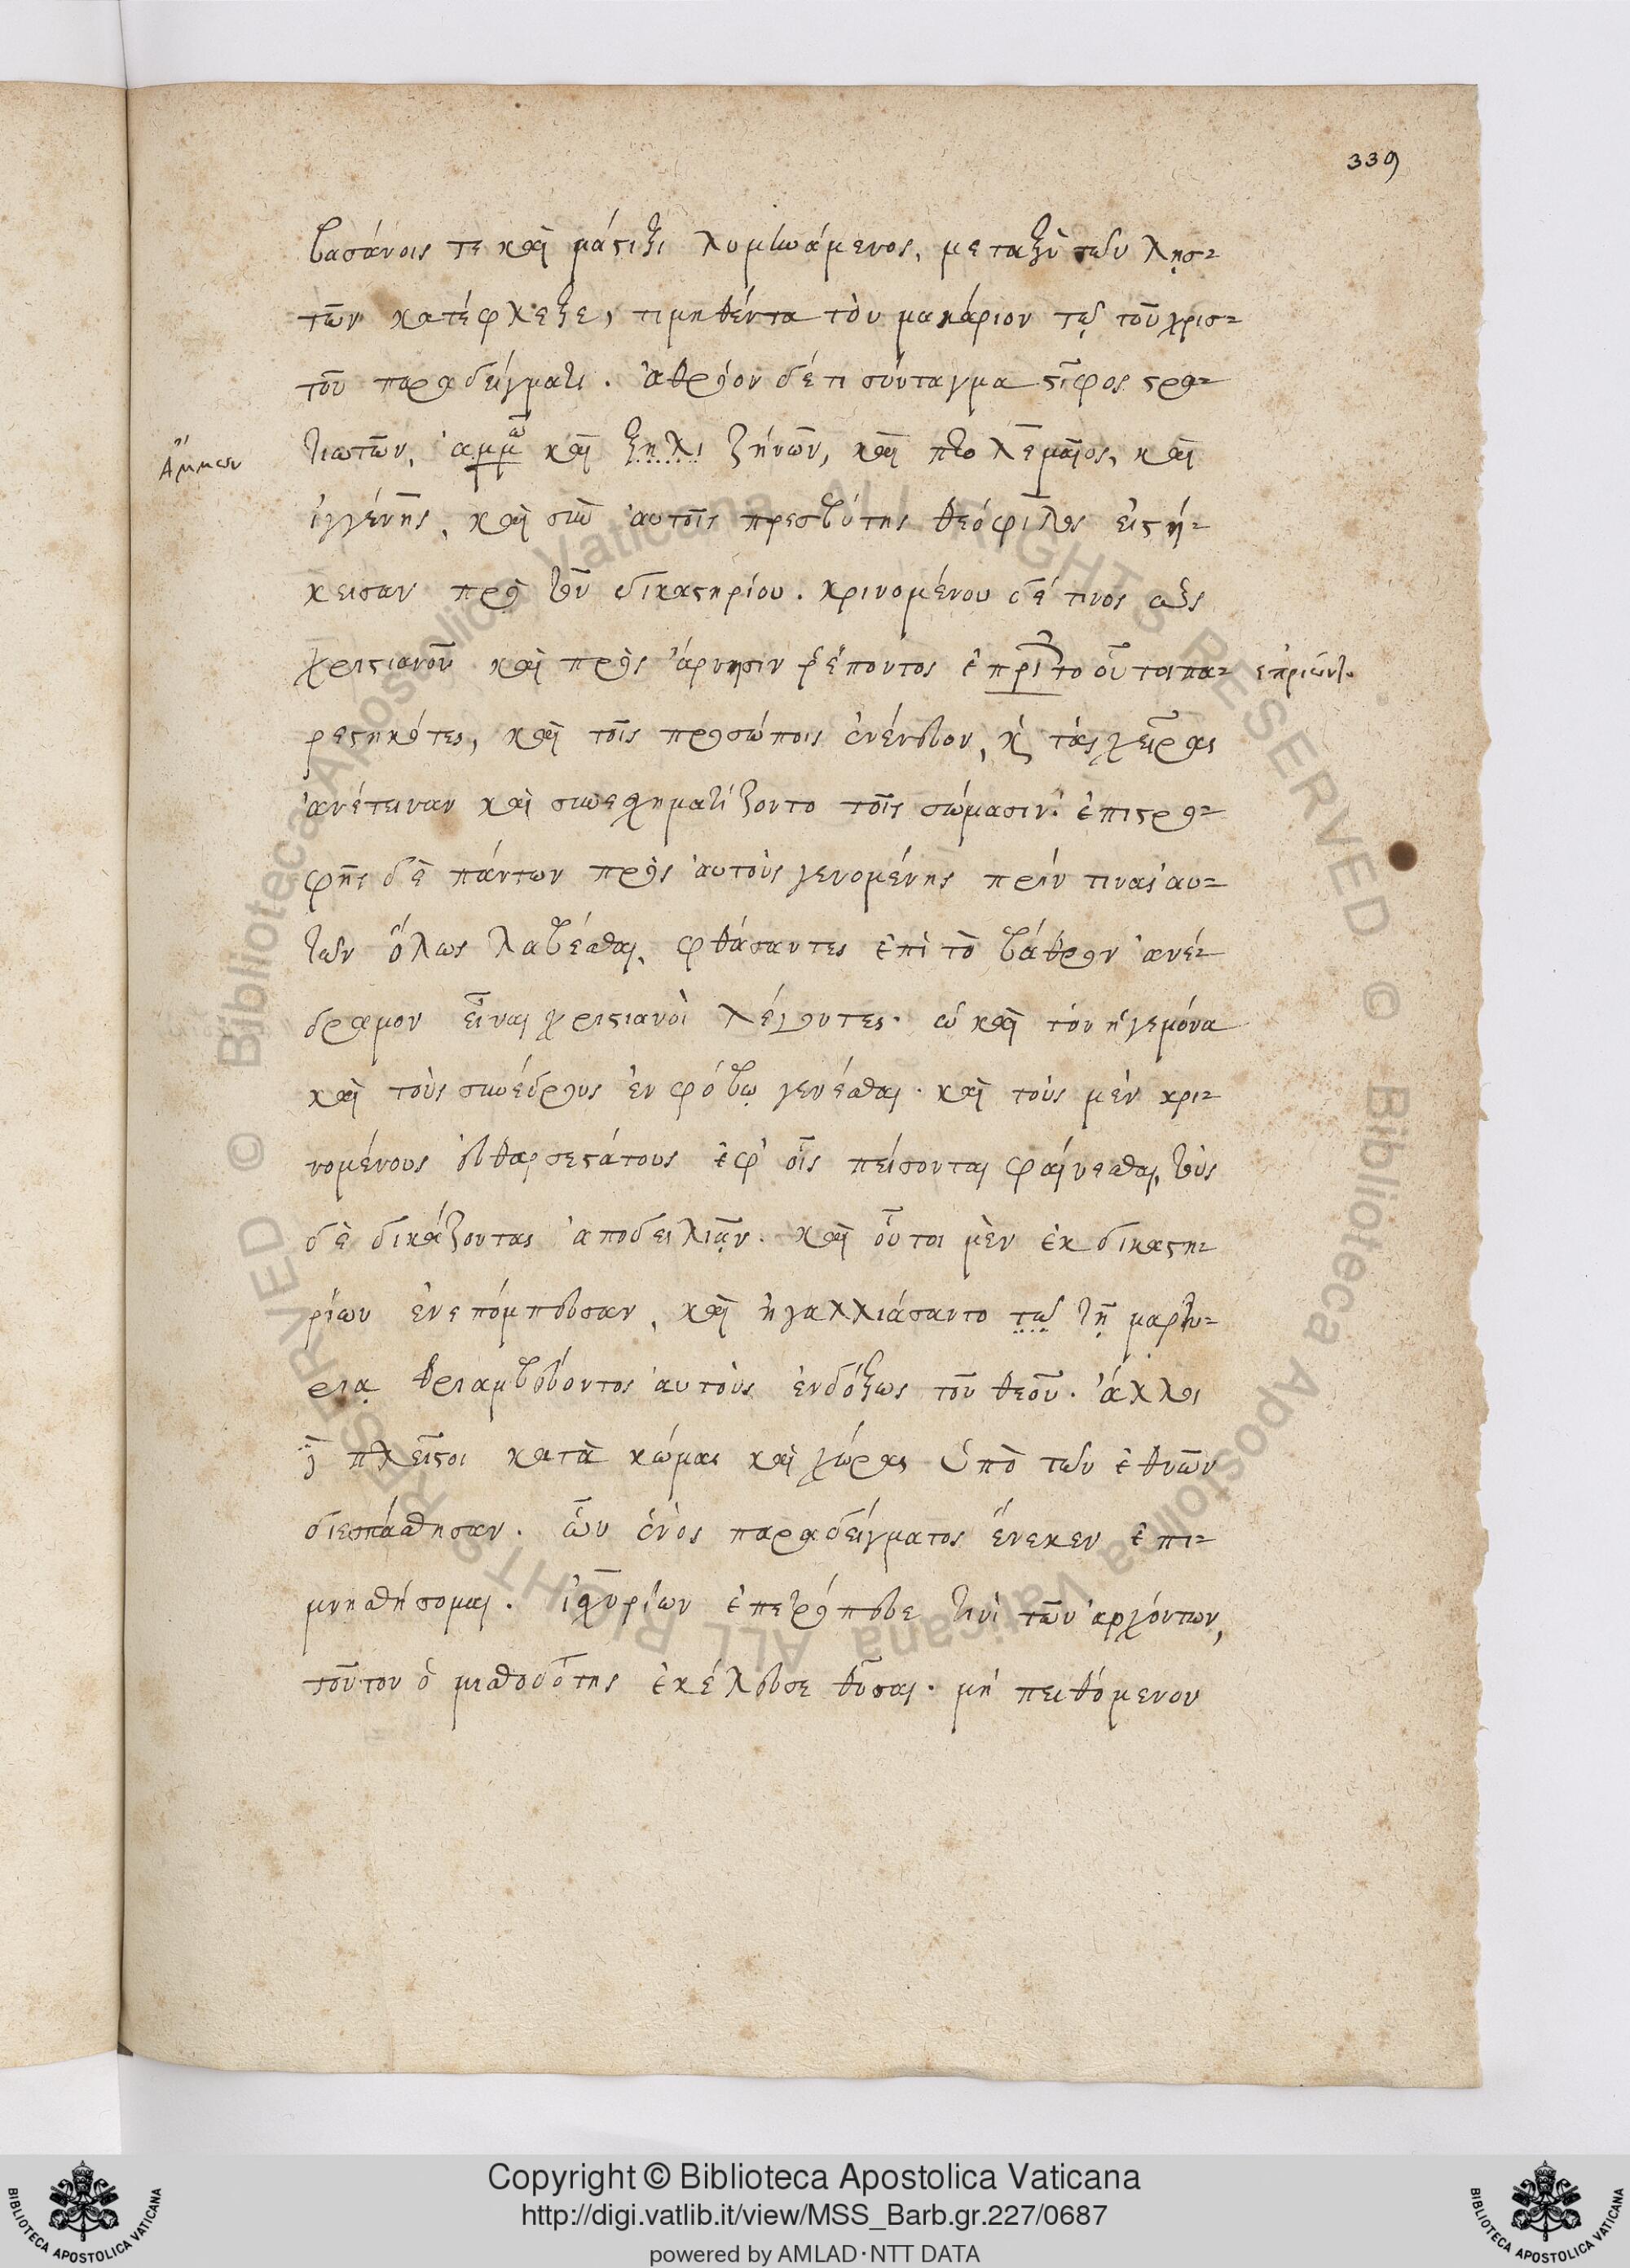 339
βασάνοις τε καὶ μάστιξι λυμῃνάμενος, μεταξὺ τῶν λησ-
τῶν κατέφλεξε, τιμηθέντα τὸν μακάριον τῷ τοῦ χρισ-
τοῦ παραδείγματι. ἀθρόον δέ τι σύνταγμα στῖφος στρα-
Ἄμμων
τιωτῶν, ἀμμῶ καὶ ξηλι ζήνων, καὶ πτολεμαῖος, καὶ
ἰγγένης, καὶ σὺν αὐτοῖς πρεσβύτης θεόφιλος εἱστή-
κεισαν πρὸ τοῦ δικαστηρίου. κρινομένου δέ τινος ὡς
χριστιανοῦ καὶ πρὸς ἄρνησιν ῥέποντος ἐπρίτο οὗτοι πα-
ἐπρίωντο
ρεστηκότες, καὶ τοῖς προσώποις ἐνένευον, καὶ τὰς χεῖρας
ἀνέτειναν καὶ συνεσχηματίζοντο τοῖς σώμασιν. ἐπιστρο-
φῆς δὲ πάντων πρὸς αὐτοὺς γενομένης πρίν τινας αὐ-
τῶν ὅλως λαβέσθαι, φθάσαντες ἐπὶ τὸ βάθρον ἀνέ-
δραμον εἶναι χριστιανοὶ λέγοντες. ὡς καὶ τὸν ἡγεμόνα
καὶ τοὺς συνέδρους ἐν φόβῳ γενέσθαι. καὶ τοὺς μὲν κρι-
νομένους εὐθαρσεστάτους ἐφ' οἷς πείσονται φαίνεσθαι, τοὺς
δὲ δικάζοντας ἀποδειλιᾷν. καὶ οὗτοι μὲν ἐκ δικαστη-
ρίων ἐνεπόμπευσαν, καὶ ἠγαλλιάσαντο τῷ τῇ μαρτυ-
ρίᾳ θριαμβεύοντος αὐτοὺς ἐνδόξως τοῦ θεοῦ. ἄλλοι
δὲ πλεῖστοι κατὰ κώμας καὶ χώρας ὑπὸ τῶν ἐθνῶν
διεσπάσθησαν. ὧν ἑνὸς παραδείγματος ἕνεκεν ἐπι-
μνησθήσομαι. ἰσχυρίων ἐπετρόπευε τινὶ τῶν ἀρχόντων,
τοῦτον ὁ μισθοδότης ἐκέλευσε θῦσαι. μὴ πειθόμενον
Copyright © Biblioteca Apostolica Vaticana
http://digi.vatlib.it/view/MSS_Barb.gr.227/0687
powered by AMLAD·NTT DATA
BIBLIOTECA APOSTOLICA VATICANA
BIBLIOTECA APOSTOLICA VATICANA